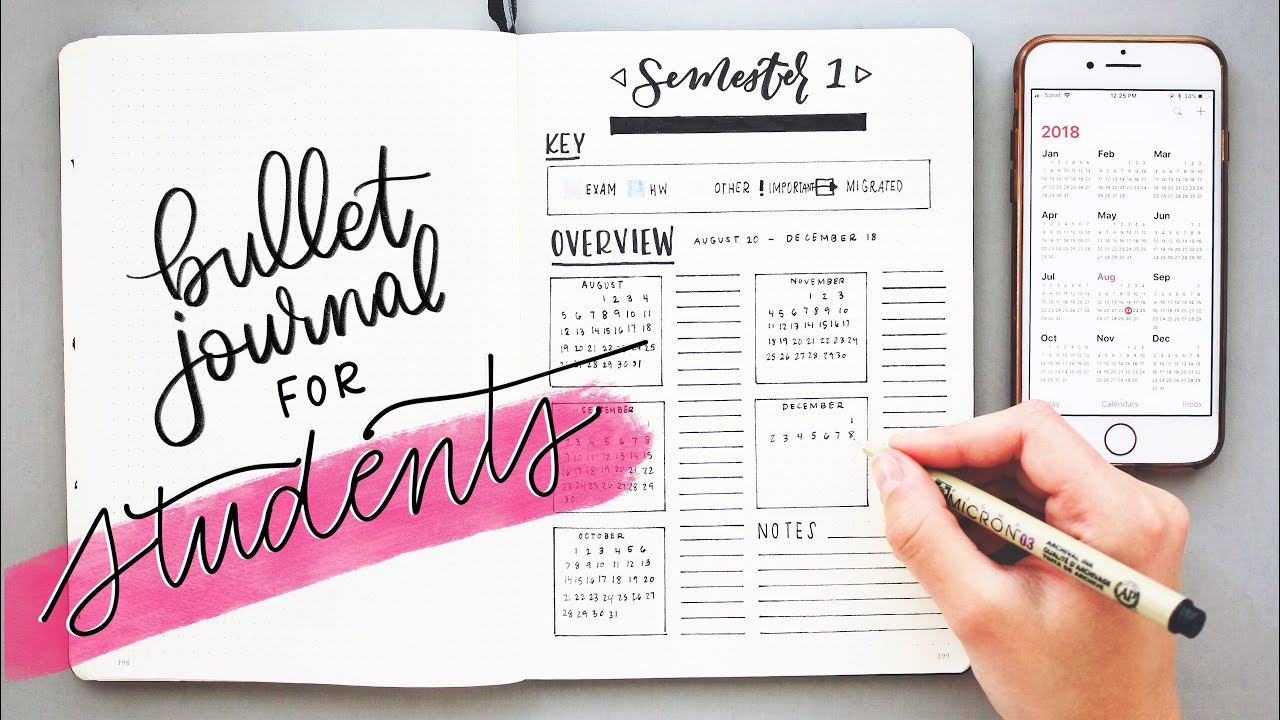 bullet
journal
FOR
students
198
Semester 1
KEY
EXAM HW OTHER ! IMPORTANT MIGRATED
OVERVIEW AUGUST 20 - DECEMBER 18
AUGUST
1 2 3 4
5 6 7 8 9 10 11
12 13 14 15 16 17 18
19 20 21 22 23 24 25
28 29 30 31
SEPTEMBER
1
2 3 4 5 6 7 8
9 10 11 12 13 14 15
16 17 18 19 20 21 22
23 24 25 26 27 28 29
30
OCTOBER
1 2 3 4 5 6
7 8 9 10 11 12 13
14 15 16 17 18 19 20
21 22 23 24 25 26 27
28 29 30 31
NOVEMBER
1 2 3
4 5 6 7 8 9 10
11 12 13 14 15 16 17
18 19 20 21 22 23 24
25 26 27 28 29 30
DECEMBER
1
2 3 4 5 6 7 8
NOTES
199
Sprint 12:25 PM 34%
2018
Jan Feb Mar
Apr May Jun
Jul Aug Sep
Oct Nov Dec
Calendars Inbox
MICRON 03
ARCHIVAL INK
QUALITÉ D'ARCHIVAGE
AP